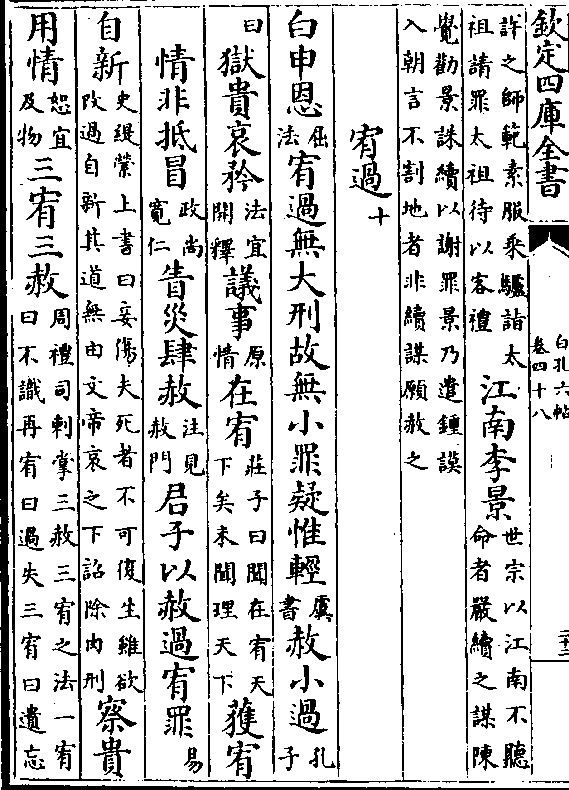 欽定四庫全書
白孔六帖
卷四十八
二十三
許之師範素服乘驢詣太
祖請罪太祖待以客禮
江南李景
世宗以江南不聽
命者嚴續之謀陳
覺勸景誅續以謝罪景乃遣鍾謨
入朝言不割地者非續謀願赦之
宥過十
白申恩
屈
法
宥過無大刑故無小罪疑惟輕
虞
書
赦小過
孔
子
曰
獄貴哀矜
法宜
開釋
議事
原
情
在宥
莊子曰聞在宥天
下矣未聞理天下
獲宥
情非抵冒
政尚
寬仁
眚災肆赦
注見
赦門
君子以赦過宥罪
易
自新
史緹縈上書曰妾傷夫死者不可復生雖欲
改過自新其道無由文帝哀之下詔除肉刑
察貴
用情
恕宜
及物
三宥三赦
周禮司刺掌三赦三宥之法一宥
曰不識再宥曰過失三宥曰遺忘